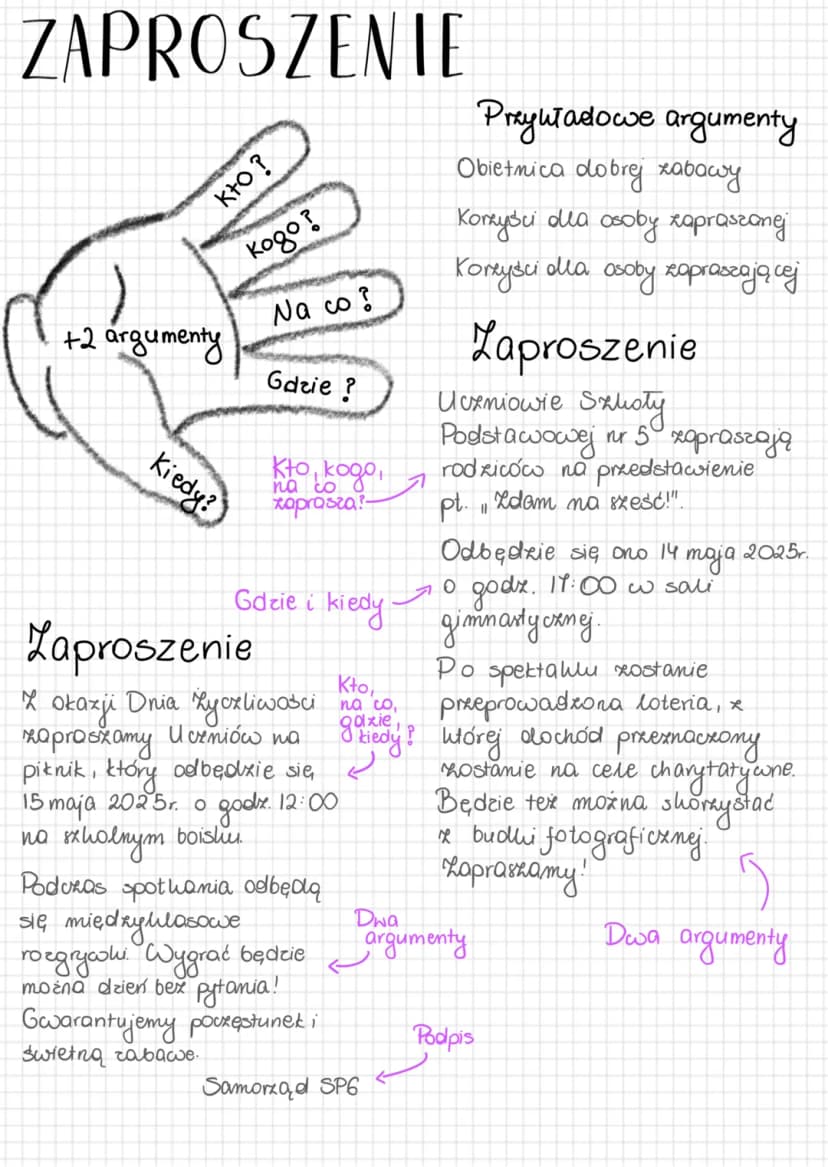 ZAPROSZENIE
Kto?
Kogo?
Na co?
Gdzie?
Kiedy?
+2 argumenty
Przykładowe argumenty
Obietnica dobrej zabawy
Korzyści dla osoby zapraszanej
Korzyści dla osoby zapraszającej
Zaproszenie
Uczniowie Szkoły
Podstawowej nr 5 zapraszają
rodziców na przedstawienie
pt. „Zdam na sześć!".
Odbędzie się ono 14 maja 2025r.
o godz. 17:00 w sali
gimnastycznej.
Po spektaklu zostanie
przeprowadzona loteria, z
której dochód przeznaczony
zostanie na cele charytatywne.
Będzie też można skorzystać
z budki fotograficznej.
Zapraszamy!
Kto, kogo,
na co
zaprasza?
Gdzie i kiedy
Dwa argumenty
Zaproszenie
Z okazji Dnia Życzliwości
zapraszamy Uczniów na
piknik, który odbędzie się,
15 maja 2025r. o godz. 12:00
na szkolnym boisku.
Podczas spotkania odbędą
się międzyklasowe
rozgrywki. Wygrać będzie
można dzień bez pytania!
Gwarantujemy poczęstunek i
świetną zabawę.
Samorząd SP6
Kto,
na co,
gdzie,
kiedy?
Dwa
argumenty
Podpis